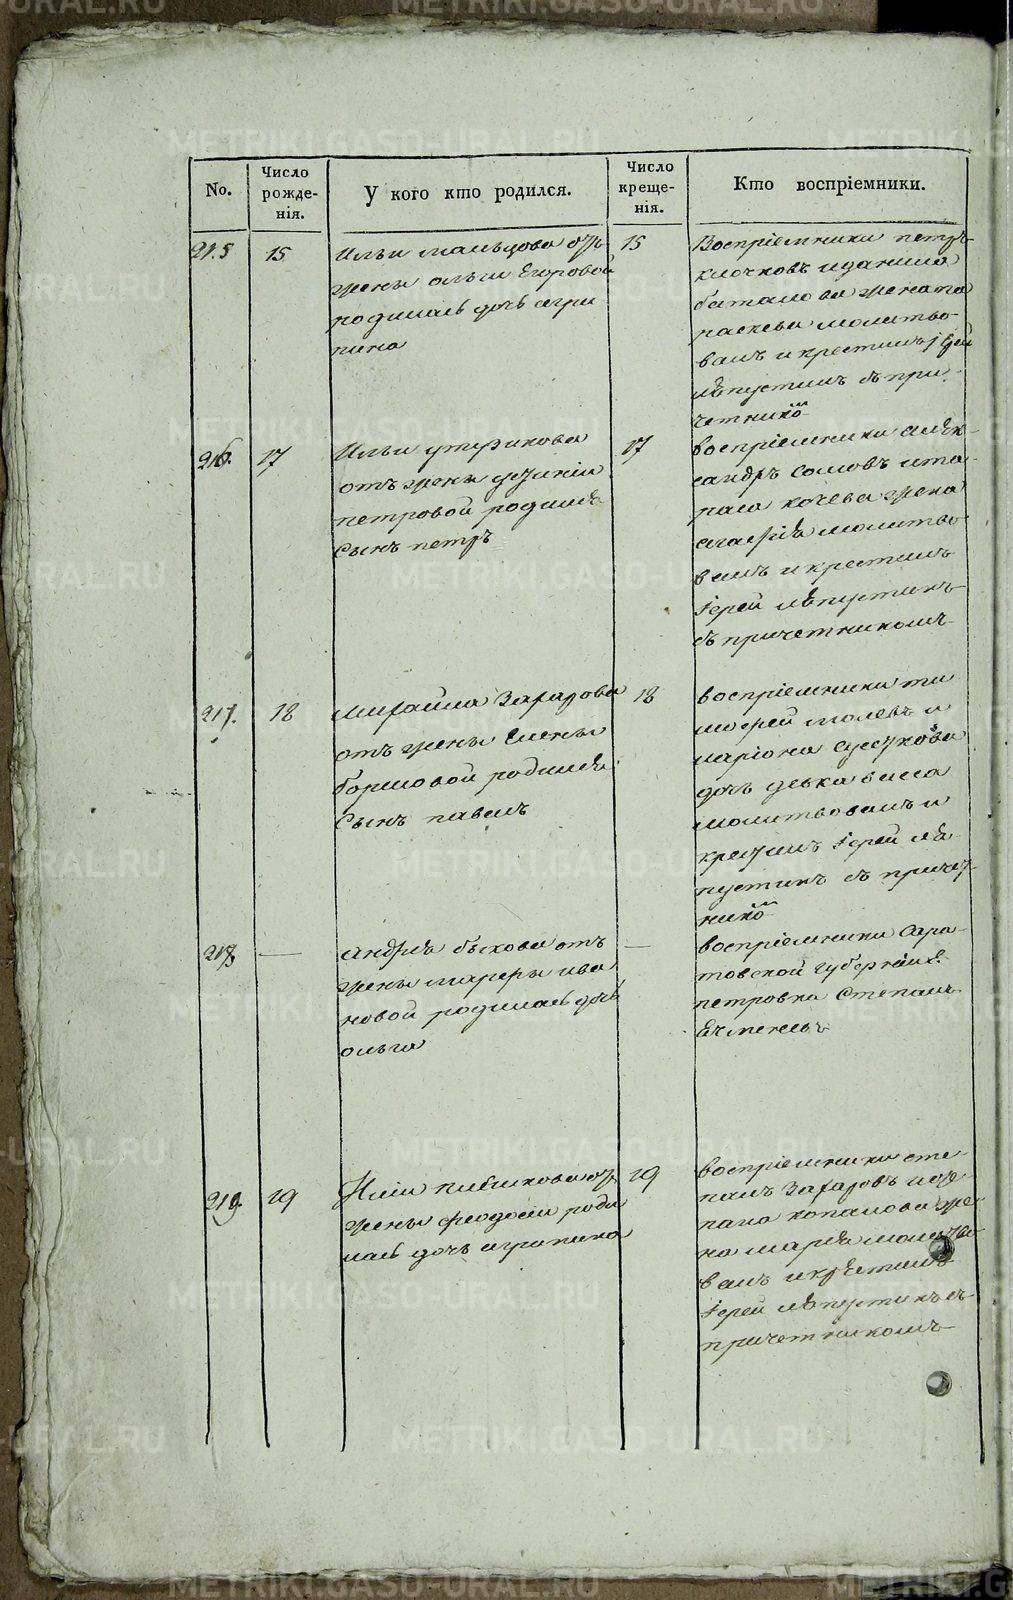 No.
Число
рожде-
нія.
У кого кто родился.
Число
креще-
нія.
Кто воспріемники.
215
15
Ильи мальцова отъ
жены ольги Егоровой
родилась дочь агри
пина
15
Воспріемники петръ
клочковъ и данила
баталова жена па
раскева молитво-
валъ и крестилъ іерей
лѣпустинъ съ при-
четнико
216.
17
Ильи
отъ жены
петровой родился
Сынъ петръ
17
воспріемники алек-
сандръ Сомовъ и та-
раса кочева жена
молитво
валъ и крестилъ
Іерей лѣпустинъ
съ причетникомъ
217.
18
Михайла Захарова
отъ жены Елены
родился
Сынъ павелъ
18
воспріемники ти
мофей и
ларіона
дочь девка васса
молитвовалъ и
крестилъ Іерей лѣ
пустинъ съ причет
нико
218
—
андрея быкова отъ
жены марфы ива
новой родилась дочь
ольга
—
воспріемники Сара
товской губерніи
петровки Степанъ
219.
19
отъ
жены феодосіи роди
лась дочь агрипина
19
воспріемники сте
панъ Захаровъ и
копалова же
на марія молитво
валъ и крестилъ
Іерей лѣпустинъ съ
причетникомъ
METRIKI.GASO-URAL.RU